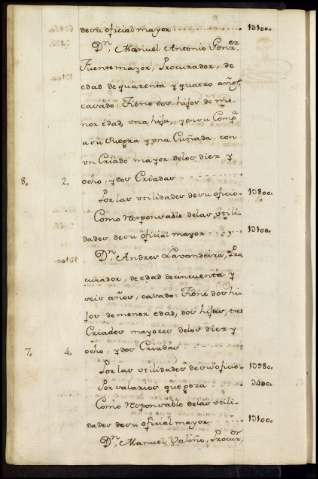 de su oficial mayor 1D100.
Dn. Manuel Antonio Gonz.ez
Fuentemayor, Procurador, de
edad de quarenta y quatro años,
casado, Tiene dos hijos de me-
nor edad, una hija, y en su Comp.a
a su Suegra y una Cuñada, con
un Criado mayor de los diez y
8, 2, ocho, y dos Criadas
Por las utilidades de su oficio 1D800.
Como Responsable de las utili-
dades de su oficial mayor 1D100.
Dn. Andres Lavandeira, Pro-
curador, de edad de cincuenta y
seis años, casado: Tiene dos hi-
jos de menor edad, dos hijas, tres
Criados mayores de los diez y
7, 4, ocho, y dos Criadas
Por las utilidades de su oficio
Por salarios que goza
Como Responsable de las utili-
dades de su oficial mayor 1D100.
Dn. Manuel Procur.or